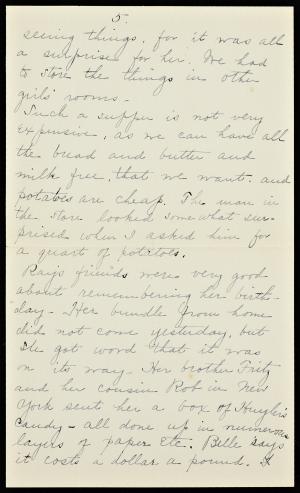 5.
seeing things, for it was all
a surprise for her. We had
to store the things in other
girls' rooms -
Such a supper is not very
expensive, as we can have all
the bread and butter and
milk free, that we want, and
potatoes are cheap. The man in
the store looked somewhat sur-
prised when I asked him for
a quart of potatoes.
Ray's friends were very good
about remembering her birth-
day - Her bundle from home
did not come yesterday, but
she got word that it was
on its way - Her brother Fritz
and her cousin Rob in New
York sent her a box of Huyler's
Candy - all done up in numerous
layers of paper etc. Belle says
it costs a dollar a pound. I